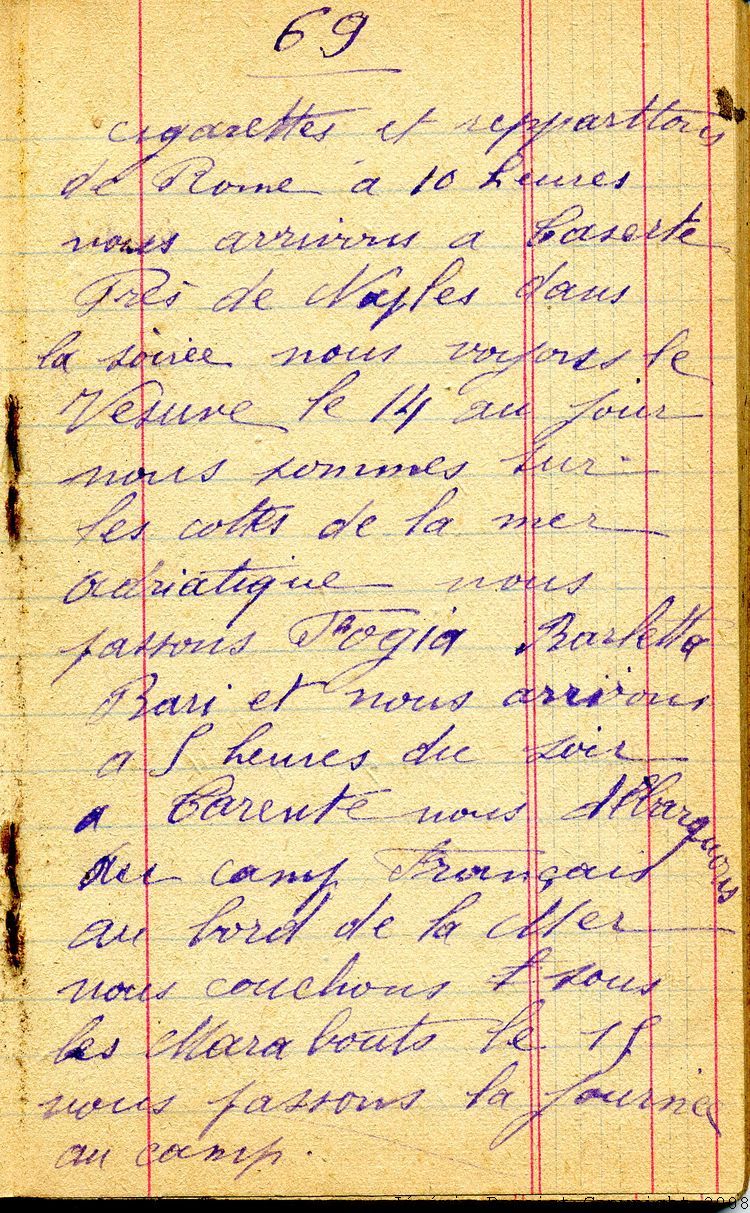 69
cigarettes et repparttons
de Rome a 10 heures
nous arrivons a Caserte
Près de Naples dans
la soirée nous voyons le
Vesuve le 14 au jour
nous sommes sur
les cottes de la mer
adriatique nous
passons Fogia Barletta
Bari et nous arrivons
a 5 heures du soir
a Tarente nous débarquons
au camp Français
au bord de la Mer
nous couchons sous
les Marabouts le 15
nous passons la journée
au camp.
Copyright 2008